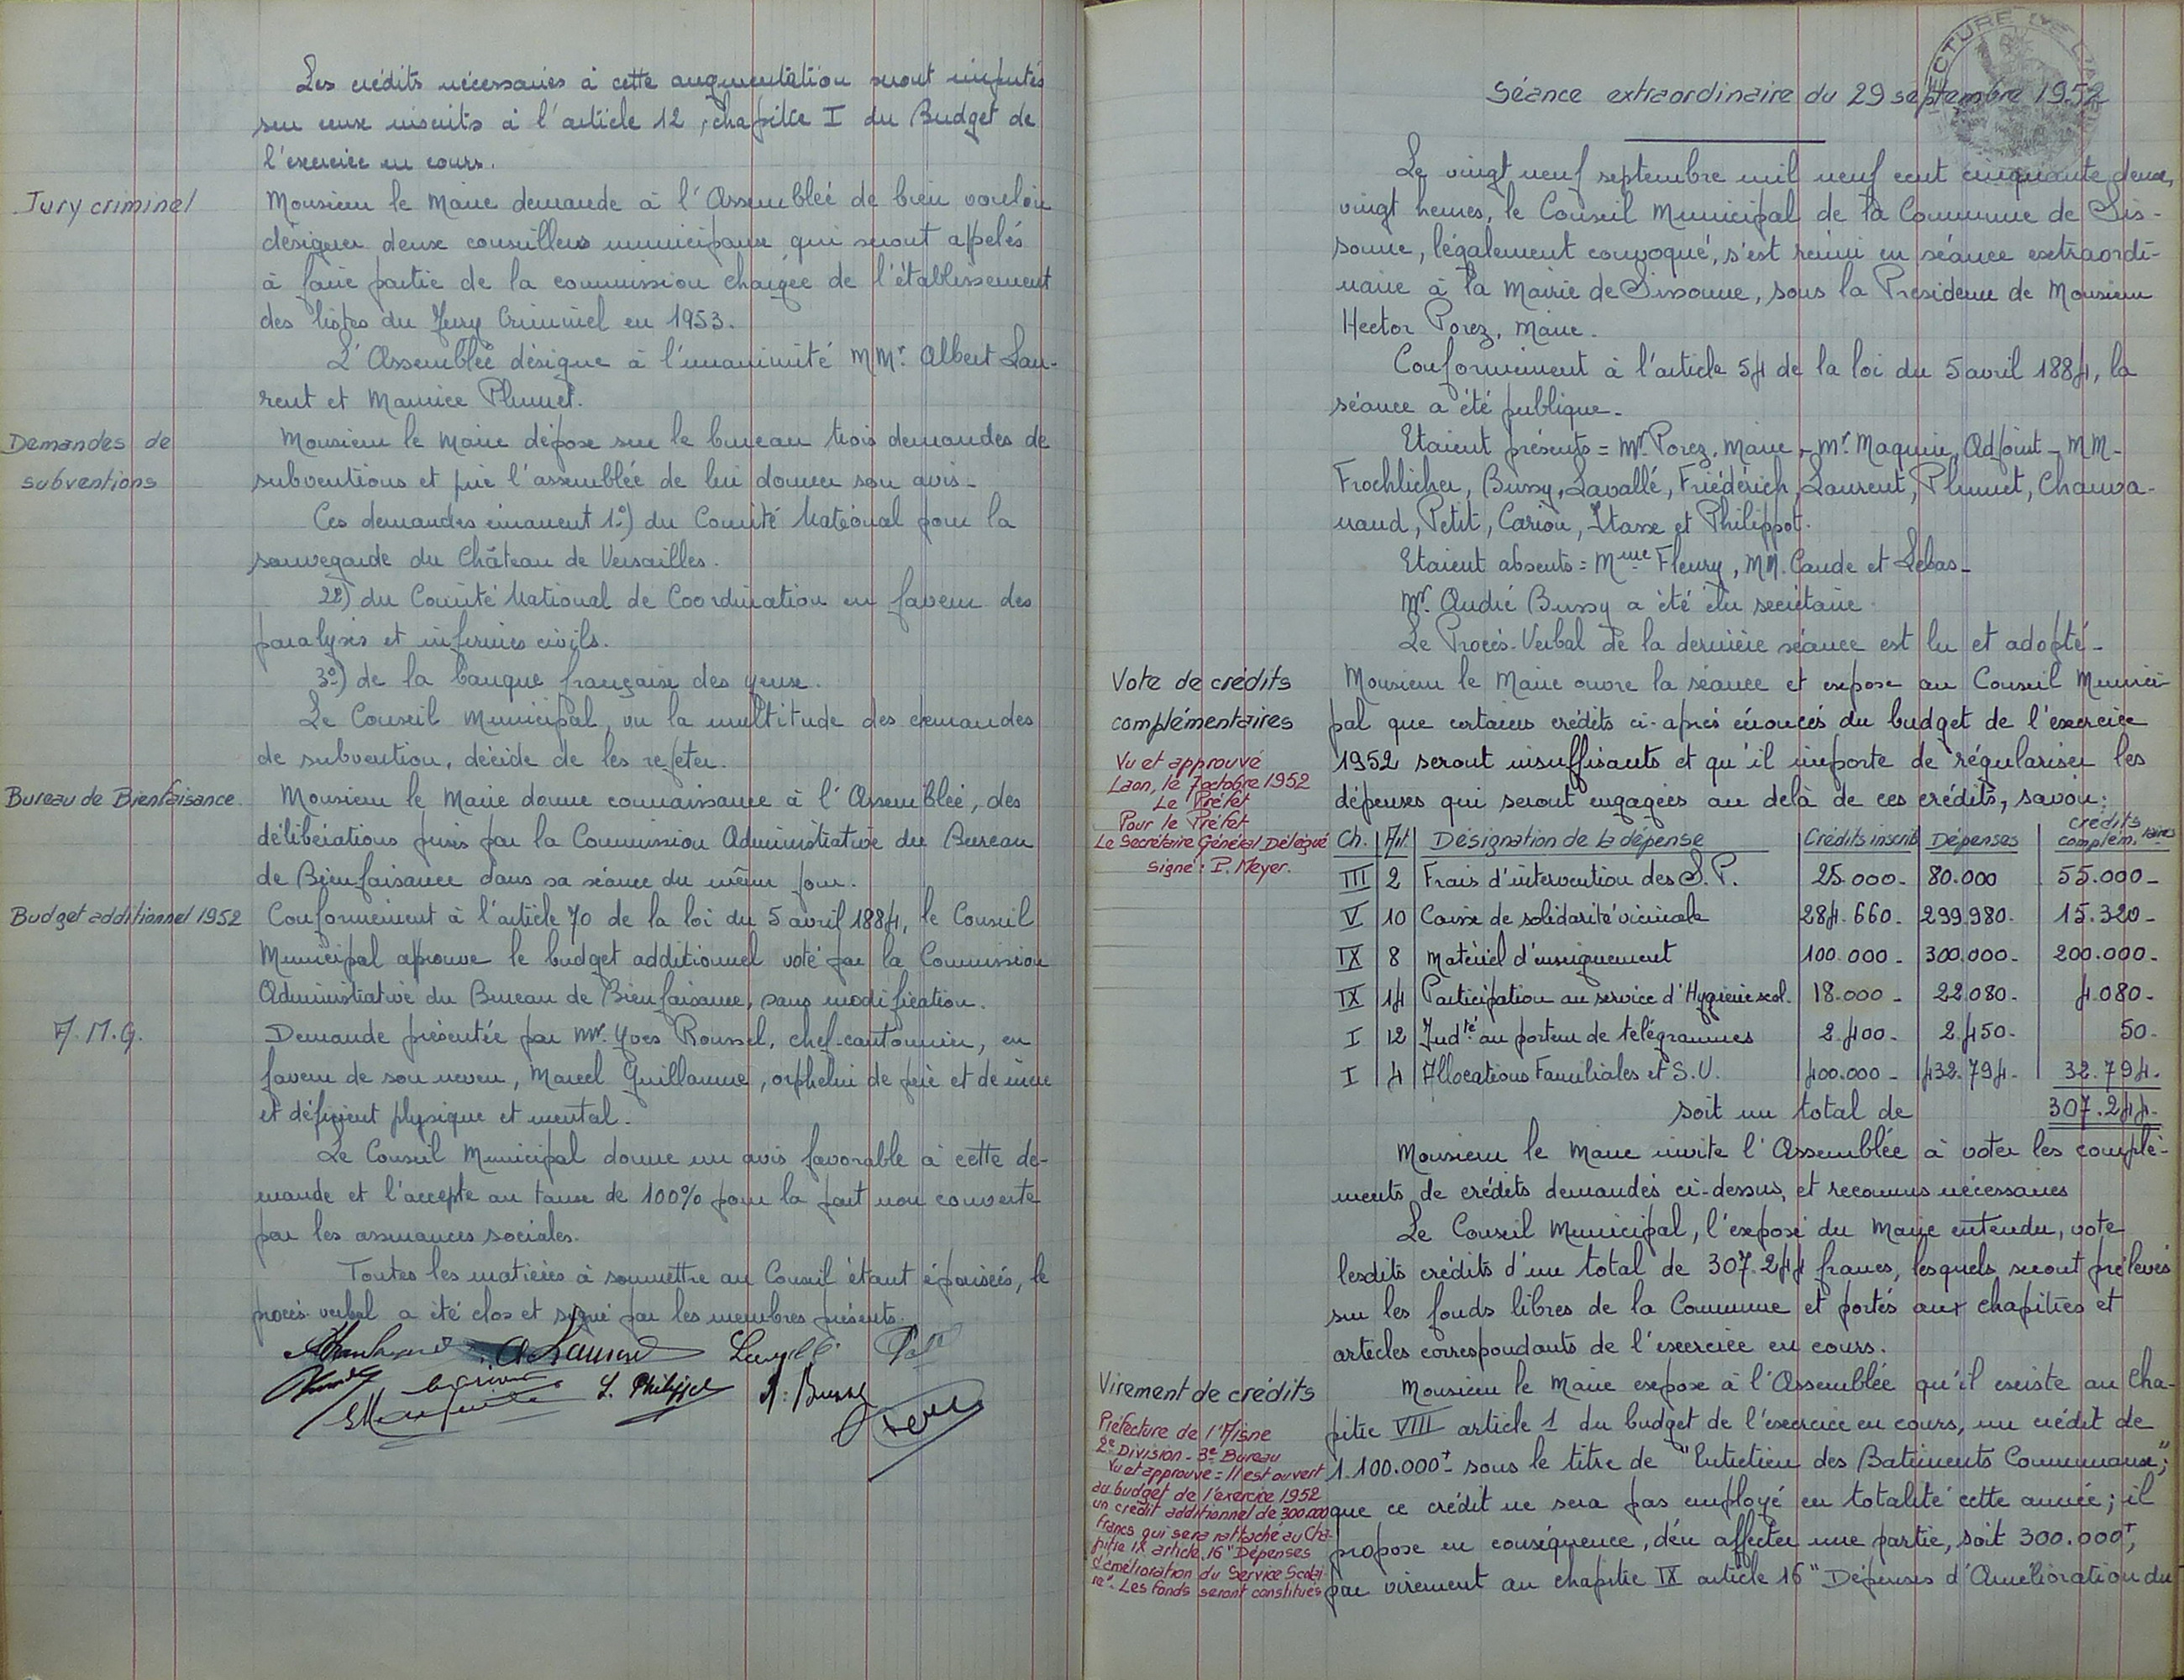 Les crédits nécessaires à cette augmentation seront imputés
sur ceux inscrits à l'article 12, chapitre I du Budget de
l'exercice en cours.
Jury criminel
Monsieur le Maire demande à l'Assemblée de bien vouloir
désigner deux conseillers municipaux qui seront appelés
à faire partie de la commission chargée de l'établissement
des listes du Jury Criminel en 1953.
L'Assemblée désigne à l'unanimité MMr. Albert Lau-
rent et Maurice Plumet.
Demandes de
subventions
Monsieur le Maire dépose sur le bureau trois demandes de
subventions et prie l'assemblée de lui donner son avis_
Ces demandes émanent 1º) du Comité National pour la
sauvegarde du Château de Versailles.
2º) du Comité National de Coordination en faveur des
paralysés et infirmes civils.
3º) de la banque française des yeux.
Le Conseil Municipal, vu la multitude des demandes
de subvention, décide de les rejeter.
Bureau de Bienfaisance.
Monsieur le Maire donne connaissance à l'Assemblée, des
délibérations prises par la Commission Administrative du Bureau
de Bienfaisance dans sa séance du même jour.
Budget additionnel 1952
Conformément à l'article 70 de la loi du 5 avril 1884, le Conseil
Municipal aprouve le budget additionnel voté par la Commission
Administrative du Bureau de Bienfaisance, sans modification.
A.M.G.
Demande présentée par Mr. Yves Roussel, chef-cantonnier, en
faveur de son neveu, Marcel Guillaume, orphelin de père et de mère
et déficient physique et mental.
Le Conseil Municipal donne un avis favorable à cette de-
mande et l'accepte au taux de 100% pour la part non couverte
par les assurances sociales.
Toutes les matières à soumettre au Conseil étant épuisées, le
procès-verbal a été clos et signé par les membres présents.
A Laurent
S. Philippot A. Bussy
Séance extraordinaire du 29 septembre 1952
Le vingt neuf septembre mil neuf cent cinquante deux,
vingt heures, le Conseil Municipal de la Commune de Sis-
sonne, légalement convoqué, s'est réuni en séance extraordi-
naire à la Mairie de Sissonne, sous la Présidence de Monsieur
Hector Porez, Maire.
Conformément à l'article 54 de la loi du 5 avril 1884, la
séance a été publique_
Etaient présents = Mr. Porez, Maire, - Mr. Maquin, Adjoint - MM-
Froehlicher, Bussy, Lavallé, Friédérich, Laurent, Plumet, Chauva-
naud, Petit, Cariou, Itasse et Philippot.
Etaient absents = Mme Fleury, MM. Caude et Lebas_
Mr. André Bussy a été élu secrétaire
Le Procès-Verbal de la dernière séance est lu et adopté_
Vote de crédits
complémentaires
Vu et approuvé
Laon, le 7 octobre 1952
Le Préfet
Pour le Préfet
Le Secrétaire Général Délégué
signé : P. Meyer.
Monsieur le Maire ouvre la séance et expose au Conseil Munici-
pal que certains crédits ci-après énoncés du budget de l'exercice
1952 seront insuffisants et qu'il importe de régulariser les
dépenses qui seront engagées au delà de ces crédits, savoir:
Ch. Art. Désignation de la dépense Crédits inscrits Dépenses crédits complém.taires
III 2 Frais d'intervention des S.P. 25.000- 80.000 55.000-
V 10 Caisse de solidarité vicinale 284.660- 299.980- 15.320-
IX 8 Matériel d'enseignement 100.000- 300.000- 200.000-
IX 14 Participation au service d'Hygiène scol. 18.000- 22.080- 4.080-
I 12 Indté au porteur de télégrammes 2.400- 2.450- 50-
I 4 Allocations Familiales et S.U. 400.000- 432.794- 32.794-
soit un total de 307.244-
Monsieur le Maire invite l'Assemblée à voter les complé-
ments de crédits demandés ci-dessus, et reconnus nécessaires
Le Conseil Municipal, l'exposé du Maire entendu, vote
lesdits crédits d'un total de 307.244 francs, lesquels seront prélevés
sur les fonds libres de la Commune et portés aux chapitres et
articles correspondants de l'exercice en cours.
Virement de crédits
Préfecture de l'Aisne
2e Division - 3e Bureau
Vu et approuvé = Il est ouvert
au budget de l'exercice 1952
un crédit additionnel de 300.000
francs qui sera rattaché au Cha-
pitre IX article 16 "Dépenses
d'amélioration du Service Scolai-
re". Les fonds seront constitués
Monsieur le Maire expose à l'Assemblée qu'il existe au cha-
pitre VIII article 1 du budget de l'exercice en cours, un crédit de
1.100.000f- sous le titre de "Entretien des Batiments Communaux";
que ce crédit ne sera pas employé en totalité cette année; il
propose en conséquence, d'en affecter une partie, soit 300.000f,
par virement au chapitre IX article 16 "Dépenses d'Amélioration du